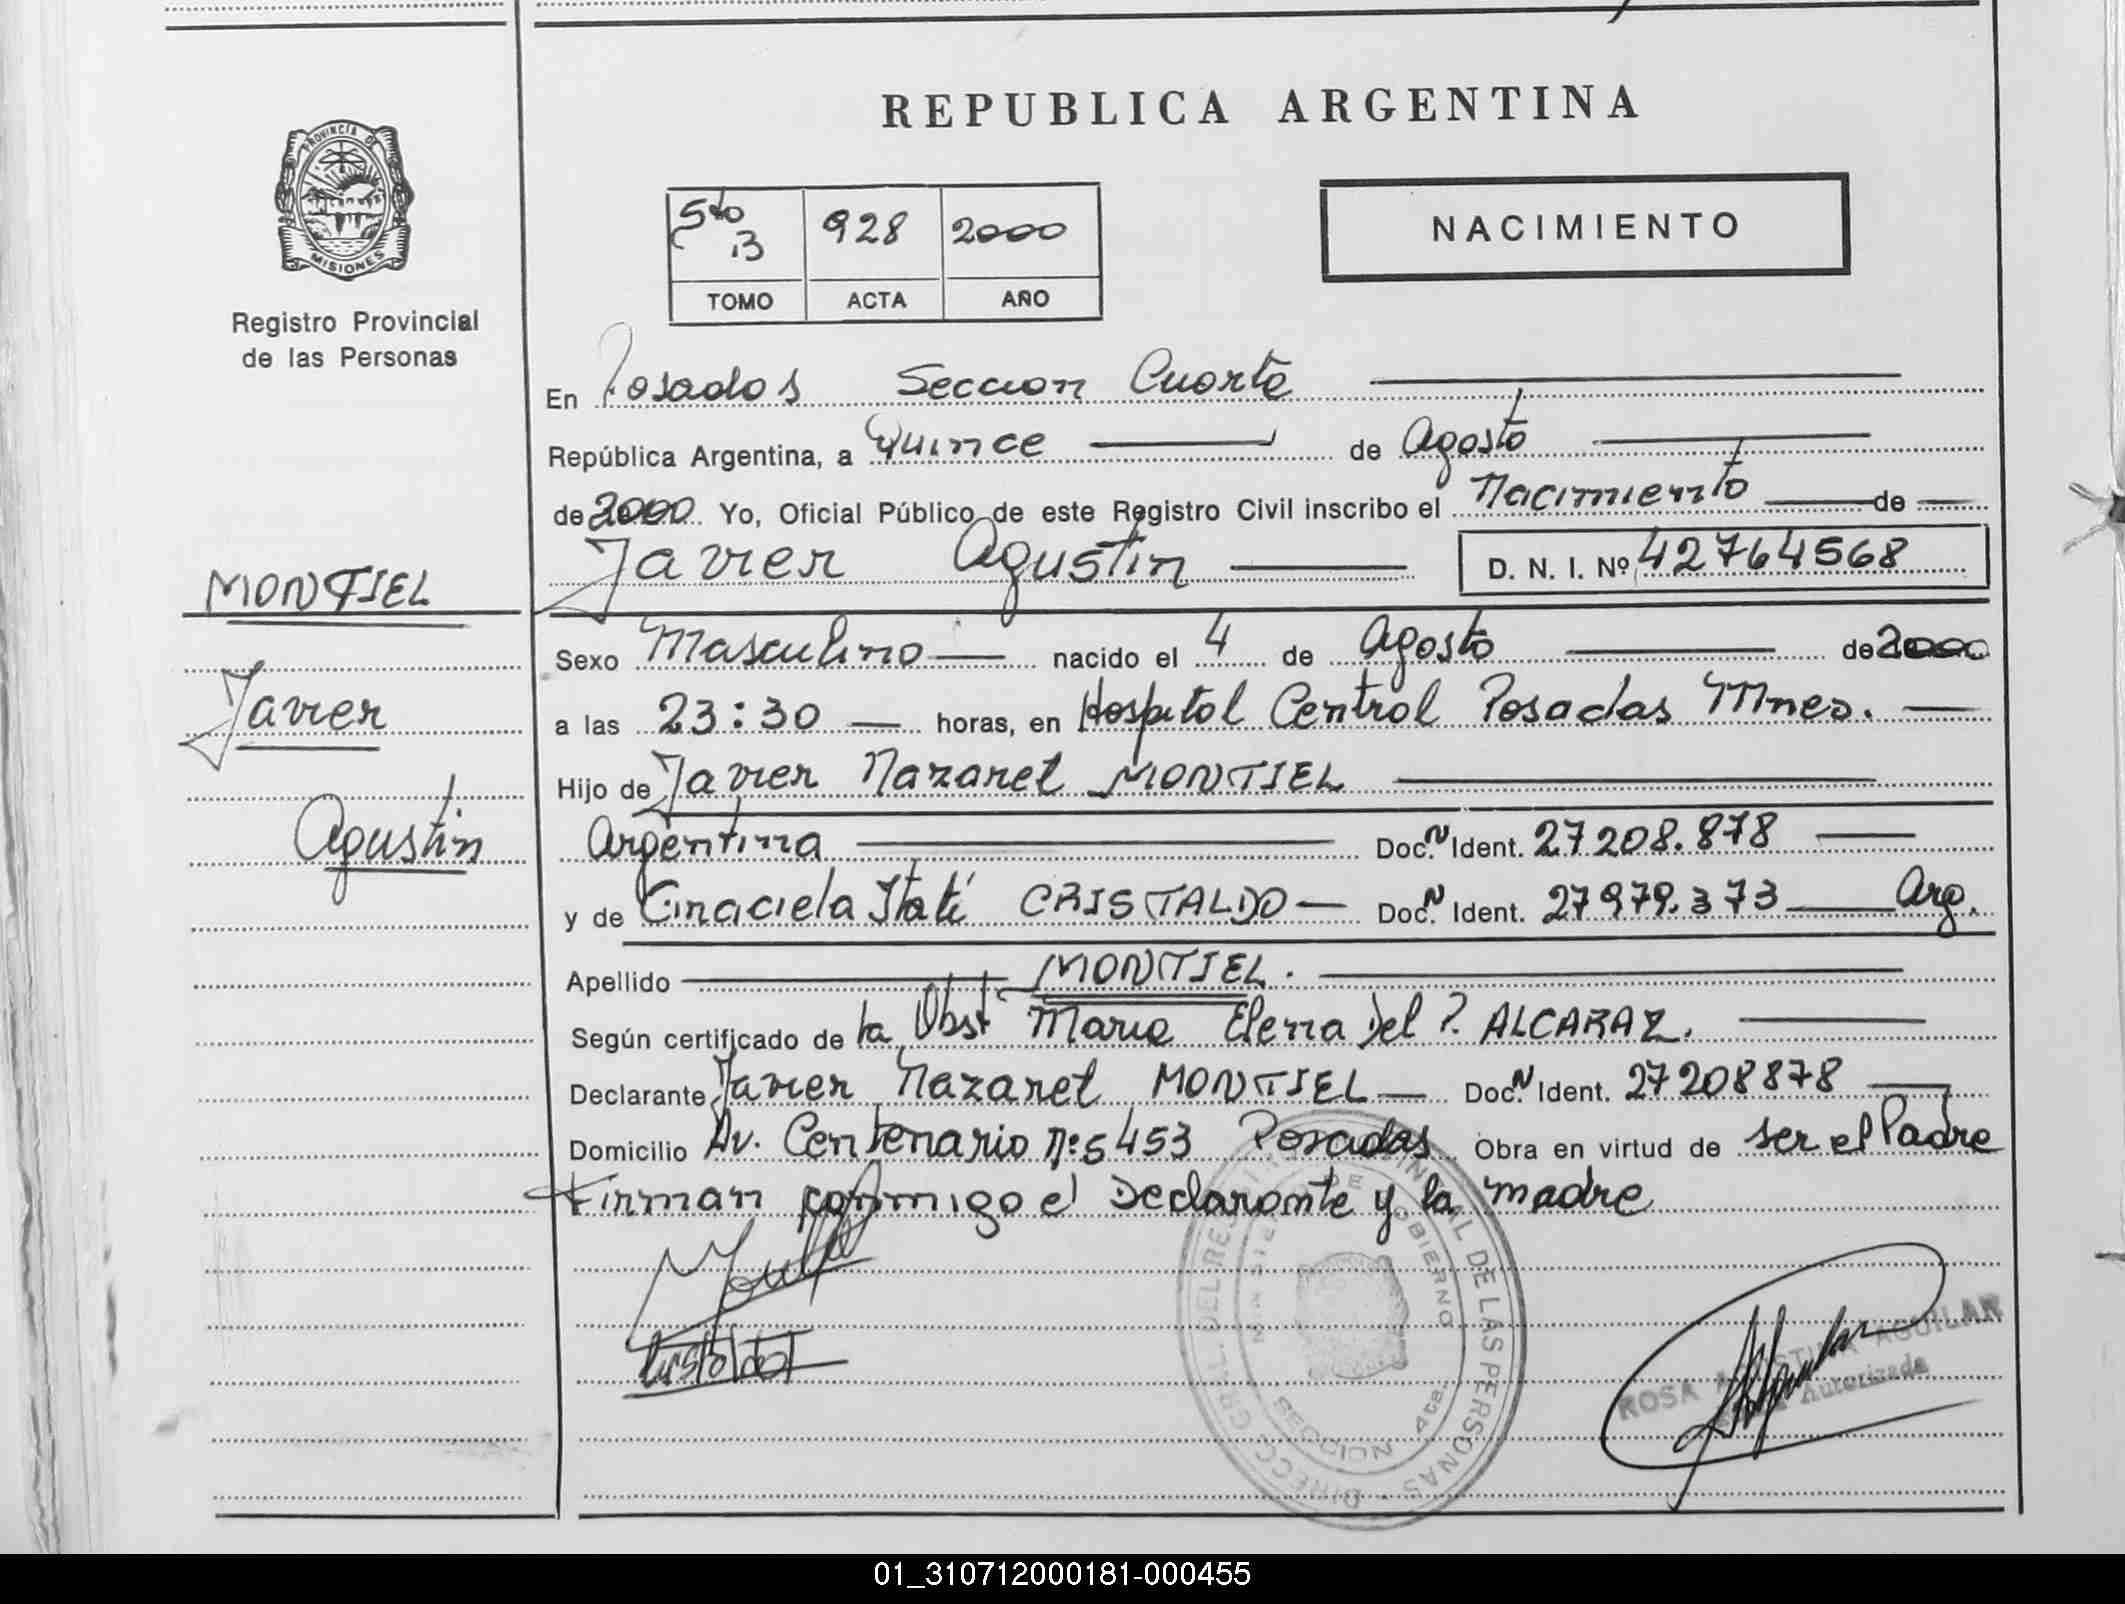 REPUBLICA ARGENTINA
PROVINCIA DE
MISIONES
Registro Provincial
de las Personas
5to
B
928
2000
TOMO
ACTA
AÑO
NACIMIENTO
En Posadas Seccion Cuarta
República Argentina, a Quince de Agosto
de 2000 Yo, Oficial Público de este Registro Civil inscribo el Nacimiento de
Javier Agustin D. N. I. Nº 42764568
MONTIEL
Javier
Agustin
Sexo Masculino nacido el 4 de Agosto de 2000
a las 23:30 horas, en Hospital Central Posadas Mnes.
Hijo de Javier Nazaret MONTIEL
Argentina Doc. N Ident. 27208.878
y de Graciela Itatí CRISTALDO Doc. N Ident. 27979.373 Arg.
Apellido MONTIEL.
Según certificado de la Obst Maria Elena Del P. ALCARAZ.
Declarante Javier Nazaret MONTIEL Doc. N Ident. 27208878
Domicilio Av. Centenario Nº 5453 Posadas Obra en virtud de ser el Padre
Firman conmigo el Declarante y la madre
DIRECC. GRAL. DEL REGISTRO PROVINCIAL DE LAS PERSONAS
MINISTERIO DE GOBIERNO
SECCION 4ta.
ROSA AGUILAR
Autorizada
01_310712000181-000455